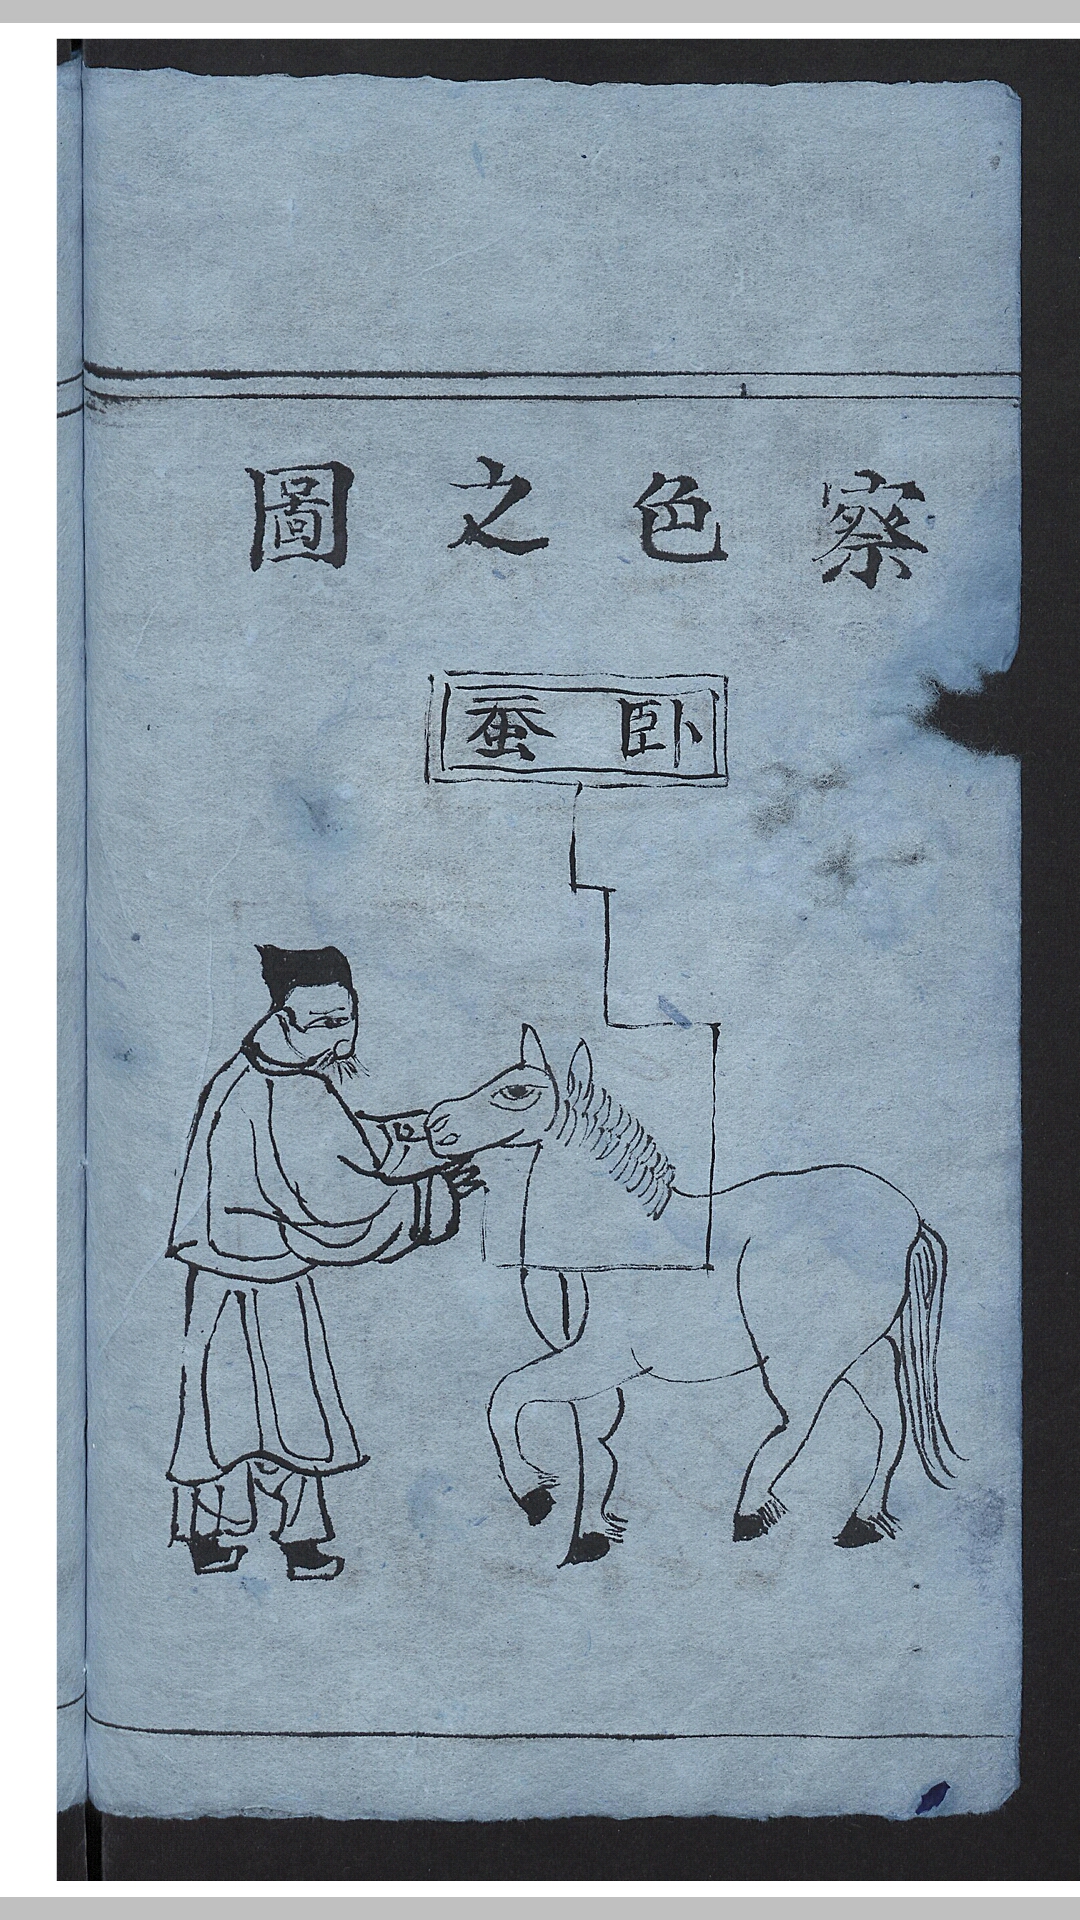 察色之圖
卧蚕